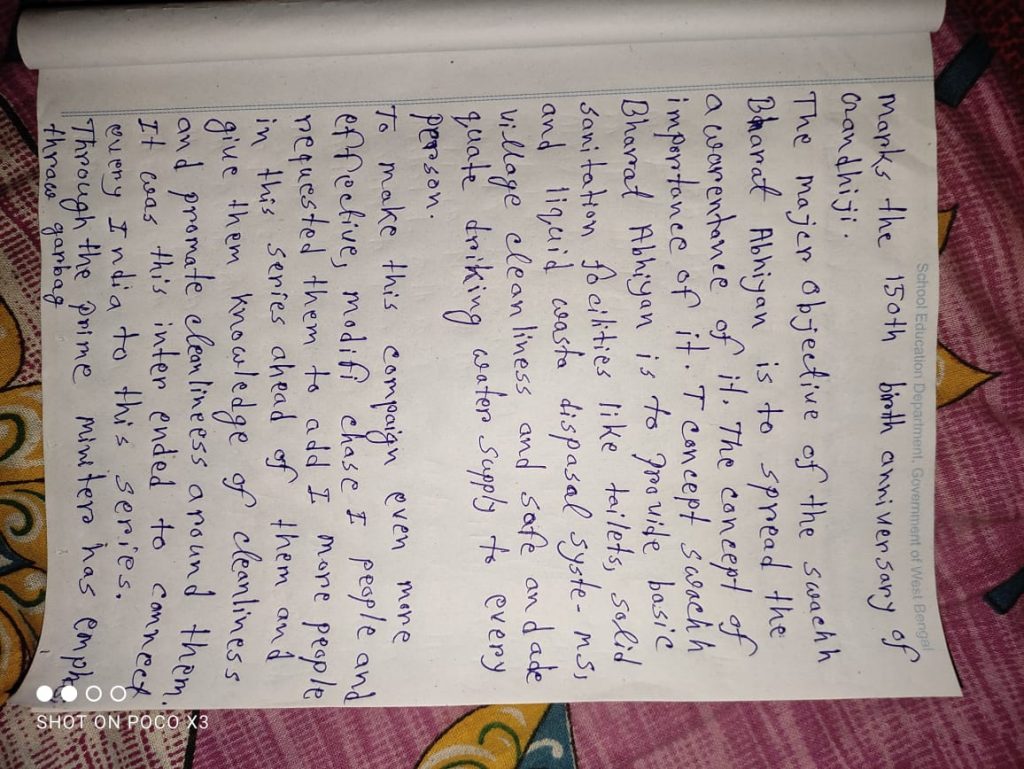 School Education Department, Government of West Bengal
marks the 150th birth anniversary of
Gandhiji.
The major objective of the swachh
Bharat Abhiyan is to spread the
awarentance of it. The concept of
importance of it. T concept swachh
Bharat Abhiyan is to provide basic
sanitation focilities like toilets, solid
and liquid waste disposal syste-ms,
village cleanliness and safe an dade
quate driking water supply to every
person.
To make this compaign even more
effective, modifi chase I people and
requested them to add I more people
in this series ahead of them and
give them knowledge of cleanliness
and promate cleanlineess around them.
It was this inter ended to connect
every India to this series.
Through the prime ministers has empha
thraw garbag
SHOT ON POCO X3